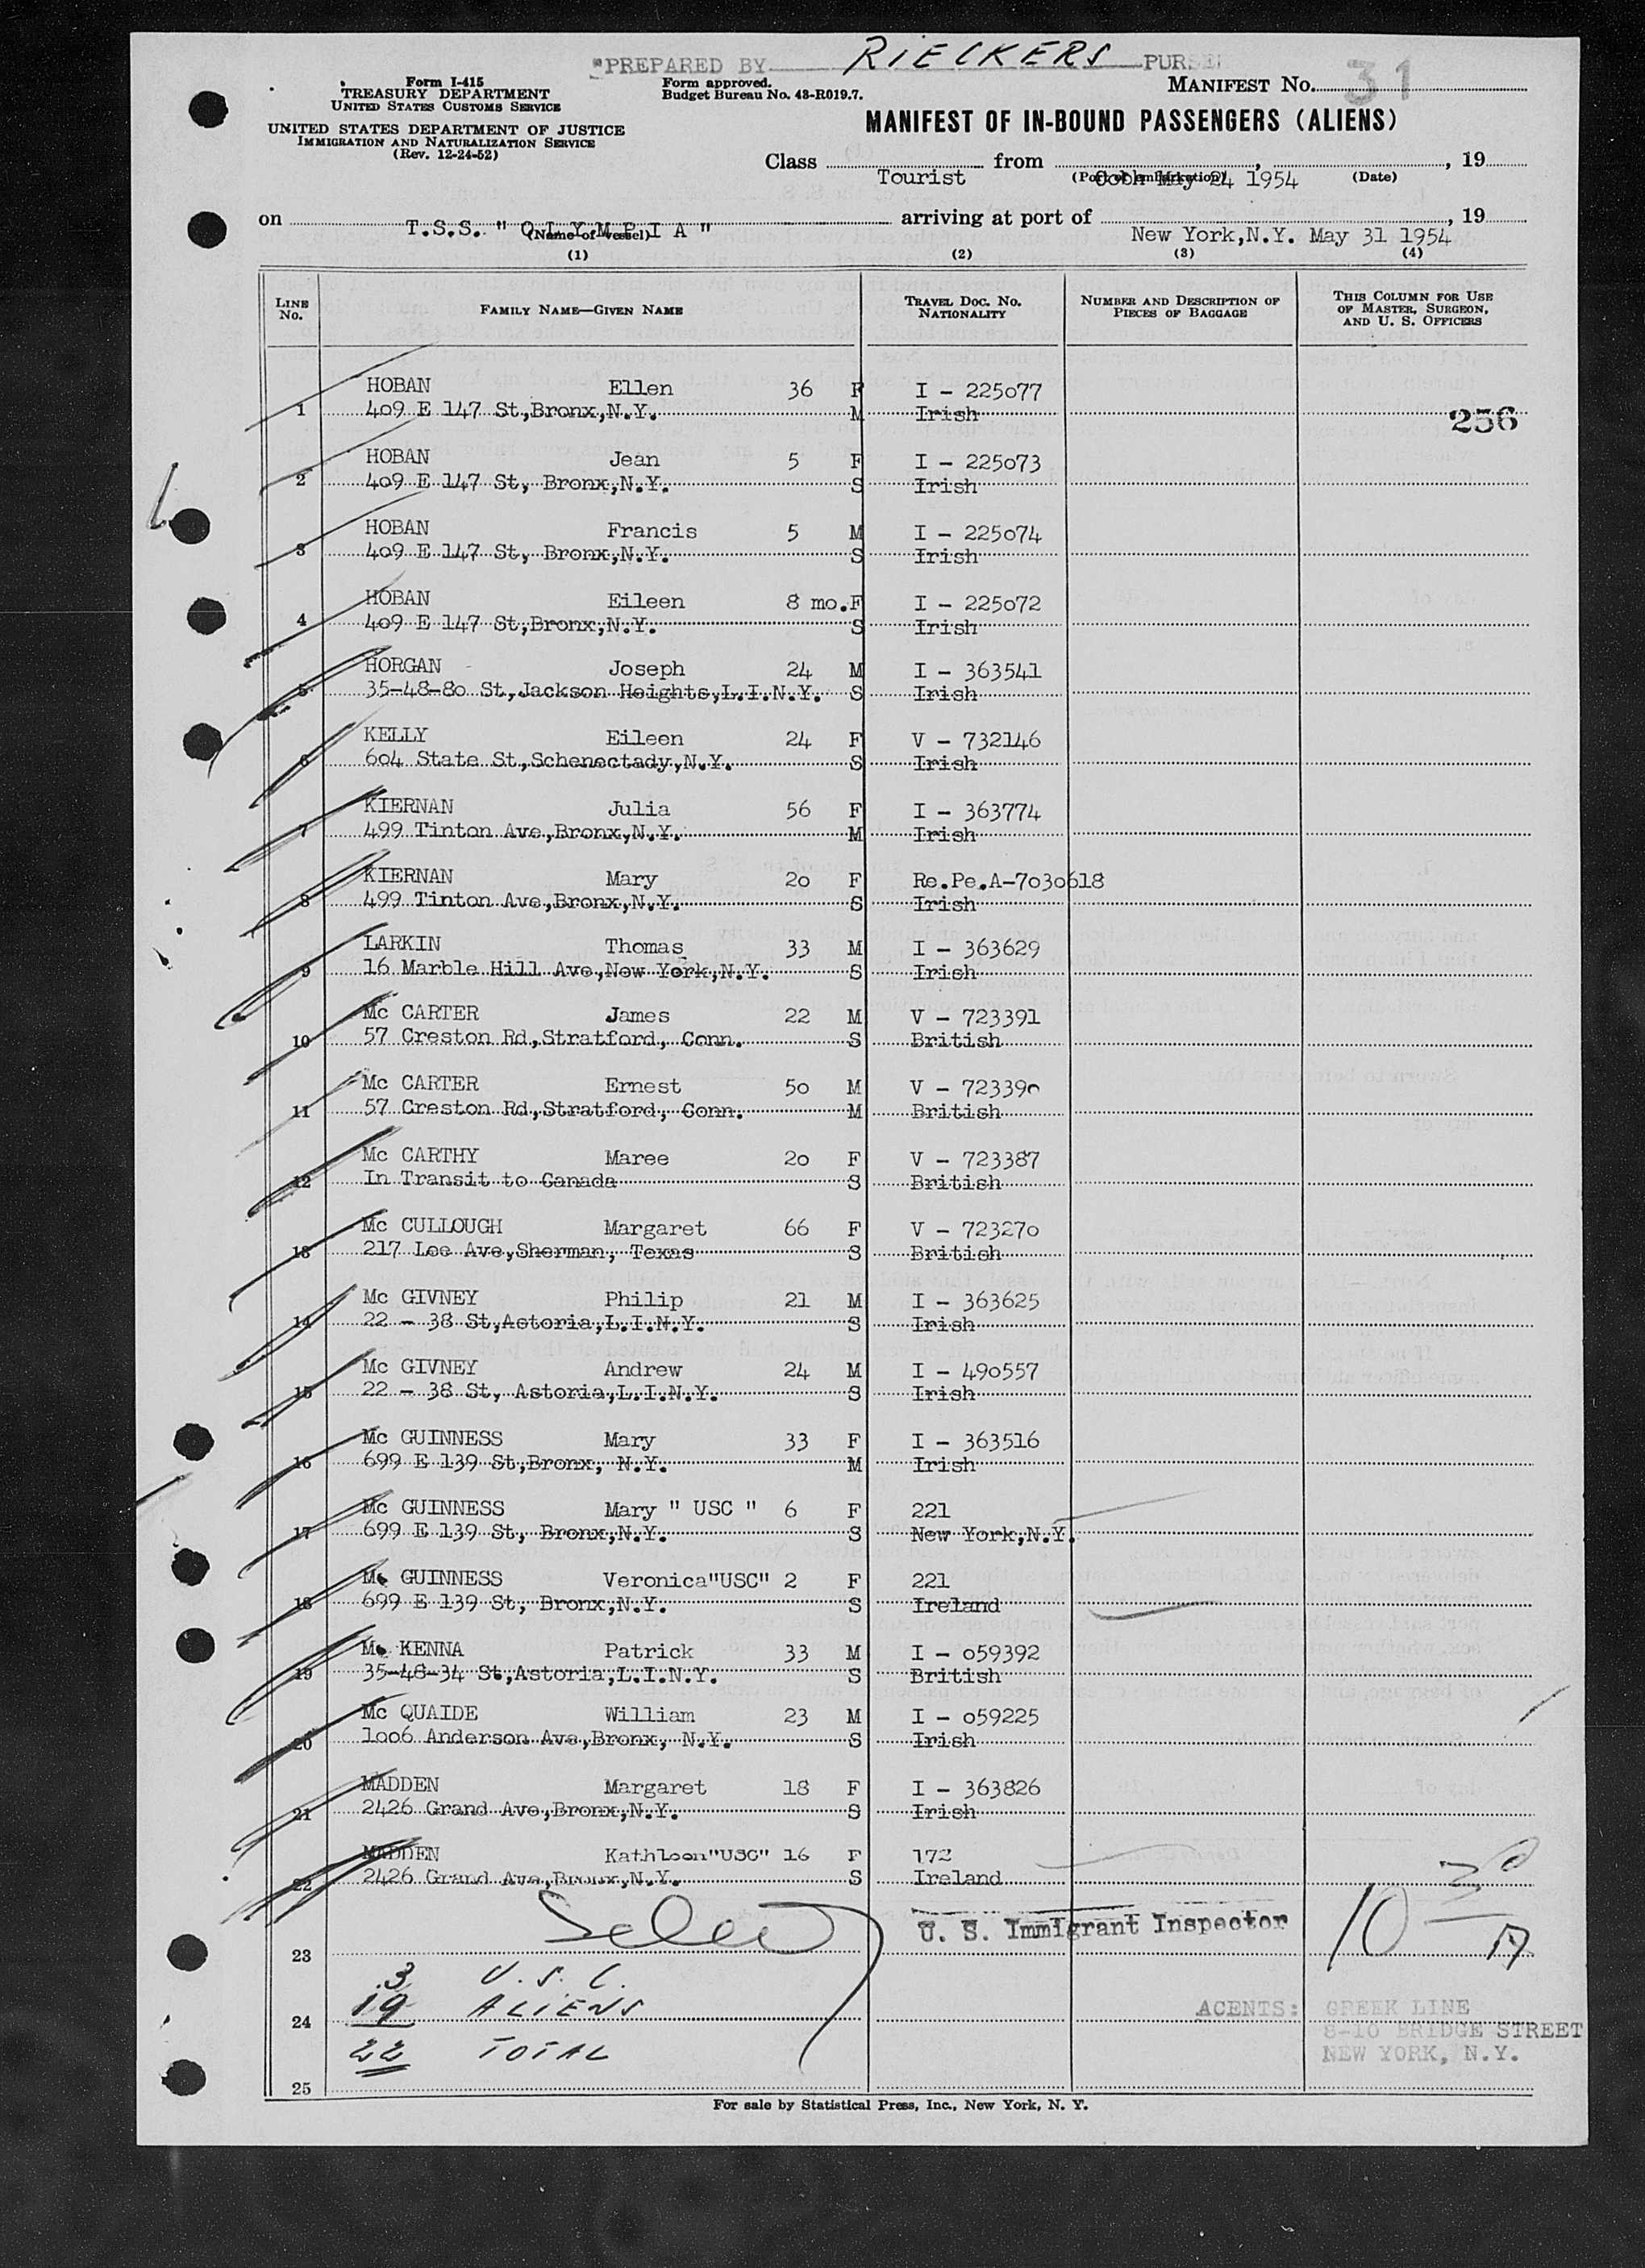 PREPARED BY RIECKERS PURSE
Form I-415
TREASURY DEPARTMENT
UNITED STATES CUSTOMS SERVICE
UNITED STATES DEPARTMENT OF JUSTICE
IMMIGRATION AND NATURALIZATION SERVICE
(Rev. 12-24-52)
Form approved.
Budget Bureau No. 43-R019.7.
MANIFEST NO. 31
MANIFEST OF IN-BOUND PASSENGERS (ALIENS)
Class Tourist from Cobh May 24 1954, 19
(Port of embarkation) (Date)
on T.S.S. " O L Y M P I A " arriving at port of New York,N.Y. May 31 1954, 19
(Name of vessel)
(1) (2) (3) (4)
LINE NO. FAMILY NAME—GIVEN NAME TRAVEL DOC. NO. NATIONALITY NUMBER AND DESCRIPTION OF PIECES OF BAGGAGE THIS COLUMN FOR USE OF MASTER, SURGEON, AND U. S. OFFICERS
HOBAN Ellen 36 F I - 225077
1 409 E 147 St,Bronx,N.Y. M Irish 256
HOBAN Jean 5 F I - 225073
2 409 E 147 St, Bronx,N.Y. S Irish
HOBAN Francis 5 M I - 225074
3 409 E 147 St, Bronx,N.Y. S Irish
HOBAN Eileen 8 mo.F I - 225072
4 409 E 147 St,Bronx,N.Y. S Irish
HORGAN Joseph 24 M I - 363541
5 35-48-80 St,Jackson Heights,L.I.N.Y. S Irish
KELLY Eileen 24 F V - 732146
6 604 State St,Schenectady,N.Y. S Irish
KIERNAN Julia 56 F I - 363774
7 499 Tinton Ave,Bronx,N.Y. M Irish
KIERNAN Mary 20 F Re.Pe.A-7030618
8 499 Tinton Ave,Bronx,N.Y. S Irish
LARKIN Thomas 33 M I - 363629
9 16 Marble Hill Ave,New York,N.Y. S Irish
Mc CARTER James 22 M V - 723391
10 57 Creston Rd,Stratford, Conn. S British
Mc CARTER Ernest 50 M V - 723390
11 57 Creston Rd,Stratford, Conn. M British
Mc CARTHY Maree 20 F V - 723387
12 In Transit to Canada S British
Mc CULLOUGH Margaret 66 F V - 723270
13 217 Lee Ave,Sherman, Texas S British
Mc GIVNEY Philip 21 M I - 363625
14 22 - 38 St,Astoria,L.I.N.Y. S Irish
Mc GIVNEY Andrew 24 M I - 490557
15 22 - 38 St, Astoria,L.I.N.Y. S Irish
Mc GUINNESS Mary 33 F I - 363516
16 699 E 139 St,Bronx, N.Y. M Irish
Mc GUINNESS Mary " USC " 6 F 221
17 699 E 139 St, Bronx,N.Y. S New York,N.Y.
Mc GUINNESS Veronica"USC" 2 F 221
18 699 E 139 St, Bronx,N.Y. S Ireland
Mc KENNA Patrick 33 M I - 059392
19 35-48-34 St,Astoria,L.I.N.Y. S British
Mc QUAIDE William 23 M I - 059225
20 1006 Anderson Ave,Bronx, N.Y. S Irish
MADDEN Margaret 18 F I - 363826
21 2426 Grand Ave,Bronx,N.Y. S Irish
MADDEN Kathleen"USC" 16 F 172
22 2426 Grand Ave,Bronx,N.Y. S Ireland
U. S. Immigrant Inspector 10 30 A
23
3 U.S.C.
24 19 ALIENS
22 TOTAL
25
AGENTS: GREEK LINE
8-10 BRIDGE STREET
NEW YORK, N.Y.
For sale by Statistical Press, Inc., New York, N. Y.